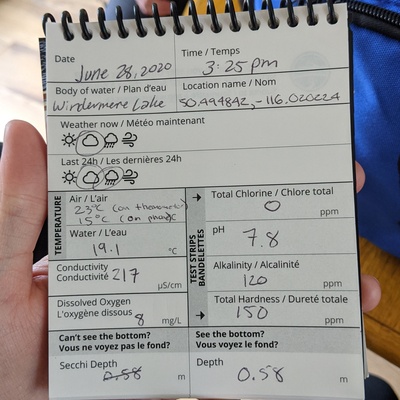 Date
Time / Temps
June 28, 2020
3:25 pm
Body of water / Plan d'eau
Location name / Nom
Windermere Lake
50.494842, -116.020224
Weather now / Météo maintenant
Last 24h / Les dernières 24h
TEMPERATURE
Air / L'air
23°C (on thermometer)
15°C (on phone)
°C
Water / L'eau
19.1 °C
Conductivity
Conductivité 217
µS/cm
Dissolved Oxygen
L'oxygène dissous 8 mg/L
TEST STRIPS
BANDELETTES
Total Chlorine / Chlore total
0
ppm
pH
7.8
Alkalinity / Alcalinité
120 ppm
Total Hardness / Dureté totale
150 ppm
Can't see the bottom?
Vous ne voyez pas le fond?
Secchi Depth
0.58 m
See the bottom?
Vous voyez le fond?
Depth
0.58 m